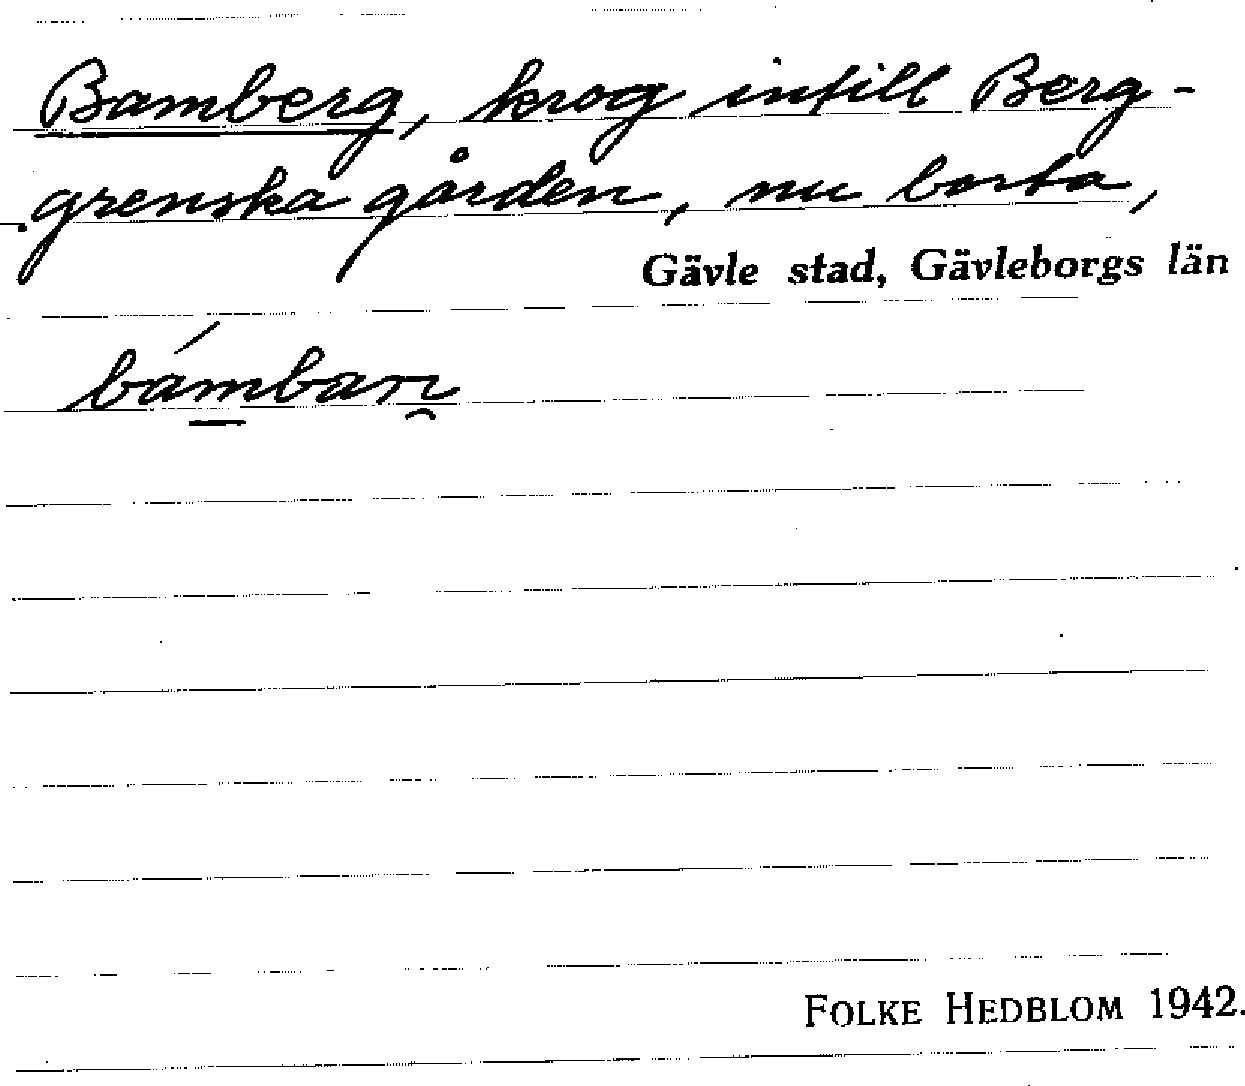 Bamberg, krog intill Berg-
grenska gården, nu borta,
Gävle stad, Gävleborgs län
bámbari̯
FOLKE HEDBLOM 1942.